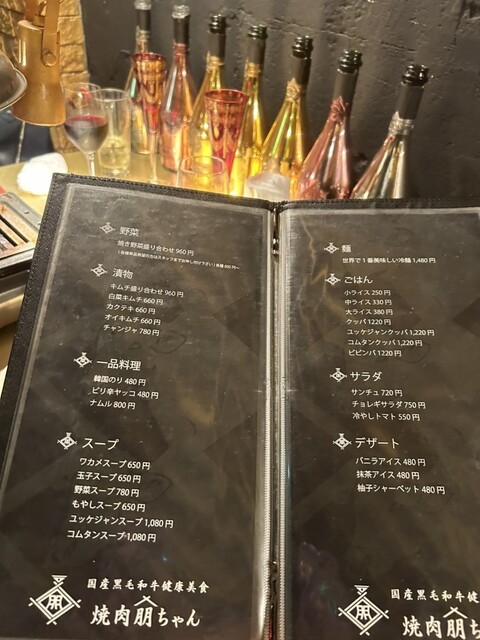 野菜
焼き野菜盛り合わせ 960 円
漬物
キムチ盛り合わせ 960 円
白菜キムチ 660 円
カクテキ 660 円
オイキムチ 660 円
チャンジャ 780 円
一品料理
韓国のり 480 円
ピリ辛ヤッコ 480 円
ナムル 800 円
スープ
ワカメスープ 650 円
玉子スープ 650 円
野菜スープ 780 円
もやしスープ 650 円
ユッケジャンスープ 1,080 円
コムタンスープ 1,080 円
国産黒毛和牛健康美食
焼肉朋ちゃん
麺
世界で1番美味しい冷麺 1,480 円
ごはん
小ライス 250 円
中ライス 330 円
大ライス 380 円
クッパ 1220 円
ユッケジャンクッパ 1,220 円
コムタンクッパ 1,220 円
ビビンバ 1220 円
サラダ
サンチュ 720 円
チョレギサラダ 750 円
冷やしトマト 550 円
デザート
バニラアイス 480 円
抹茶アイス 480 円
柚子シャーベット 480 円
国産黒毛和牛
焼肉朋ち